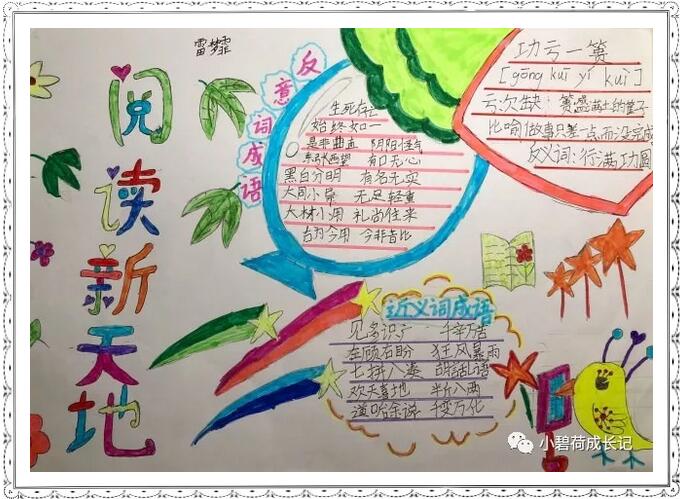 雷梦霏
阅读新天地
反意词成语
生死存亡
始终如一
是非曲直 阴阳怪气
东张西望 有口无心
黑白分明 有名无实
大同小异 无足轻重
大材小用 礼尚往来
古为今用 今非昔比
功亏一篑
[gōng kuī yí kuì]
亏次缺 篑盛满土的筐子
比喻做事只差一点,而没完成
反义词:行满功圆
近义词成语
见多识广 千辛万苦
左顾右盼 狂风暴雨
七拼八凑 甜言蜜语
欢天喜地 半斤八两
千变万化
小碧荷成长记